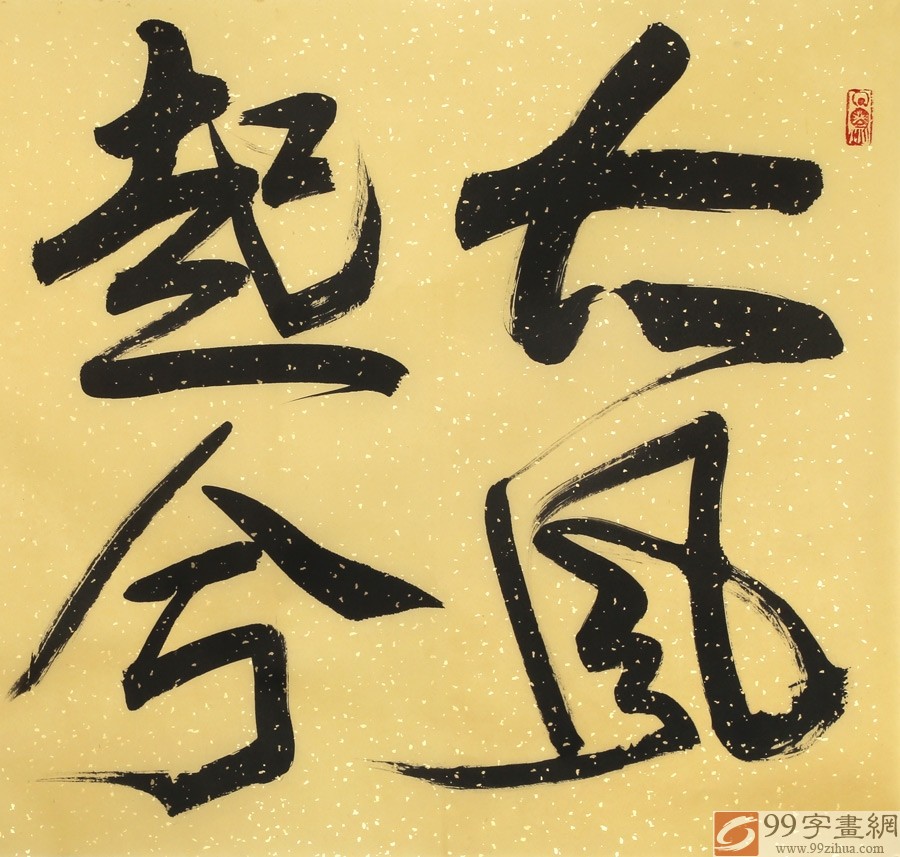 大風
起兮
99字畫網
www.99zihua.com